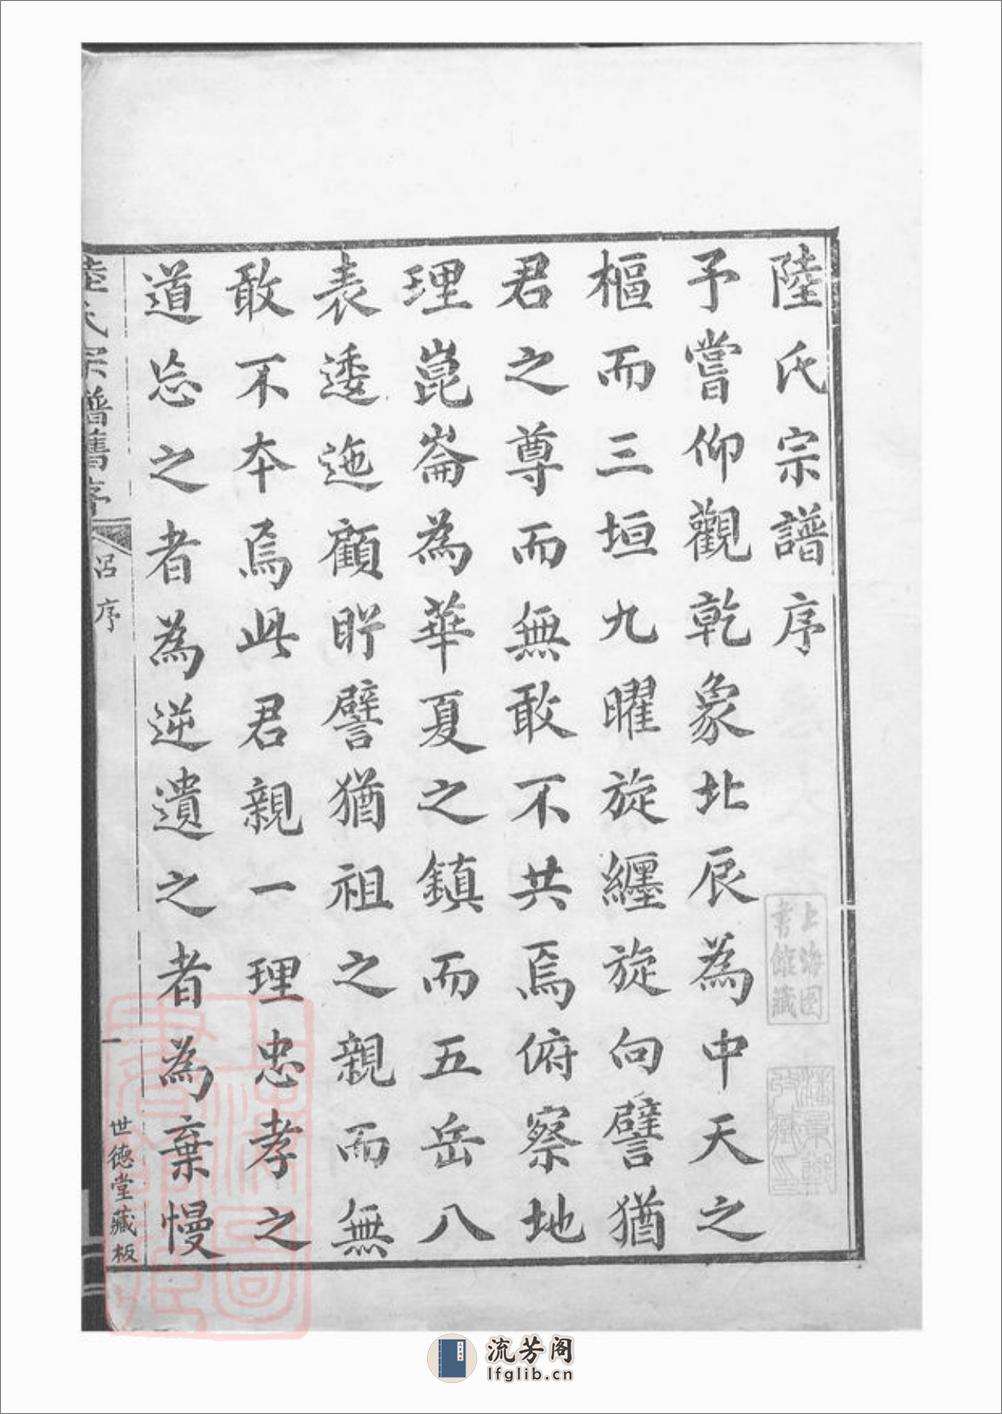 陸氏宗譜序
予嘗仰觀乾象北辰為中天之
樞而三垣九曜旋纏旋向譬猶
君之尊而無敢不共焉俯察地
理崑崙為華夏之鎮而五岳八
表逶迤顧盻譬猶祖之親而無
敢不本焉此君親一理忠孝之
道忘之者為逆遺之者為棄慢
陸氏宗譜舊序
呂序
一
世德堂藏板
上海图
書館藏
流芳阁
lfglib.cn